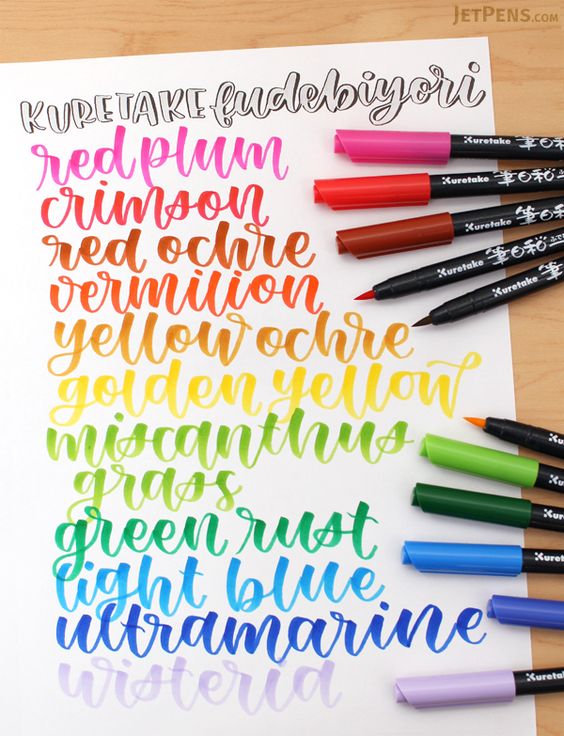 JETPENS.COM
KURETAKE fudebiyori
red plum
crimson
red ochre
vermilion
yellow ochre
golden yellow
miscanthus
grass
green rust
light blue
ultramarine
wisteria
Kuretake 筆日和
Kuretake 筆日和
Kuretake 筆日和
Kuretake 筆日和
Kuretake 筆日和
Kuretake
Kuretake
Kuretake
Kuretake